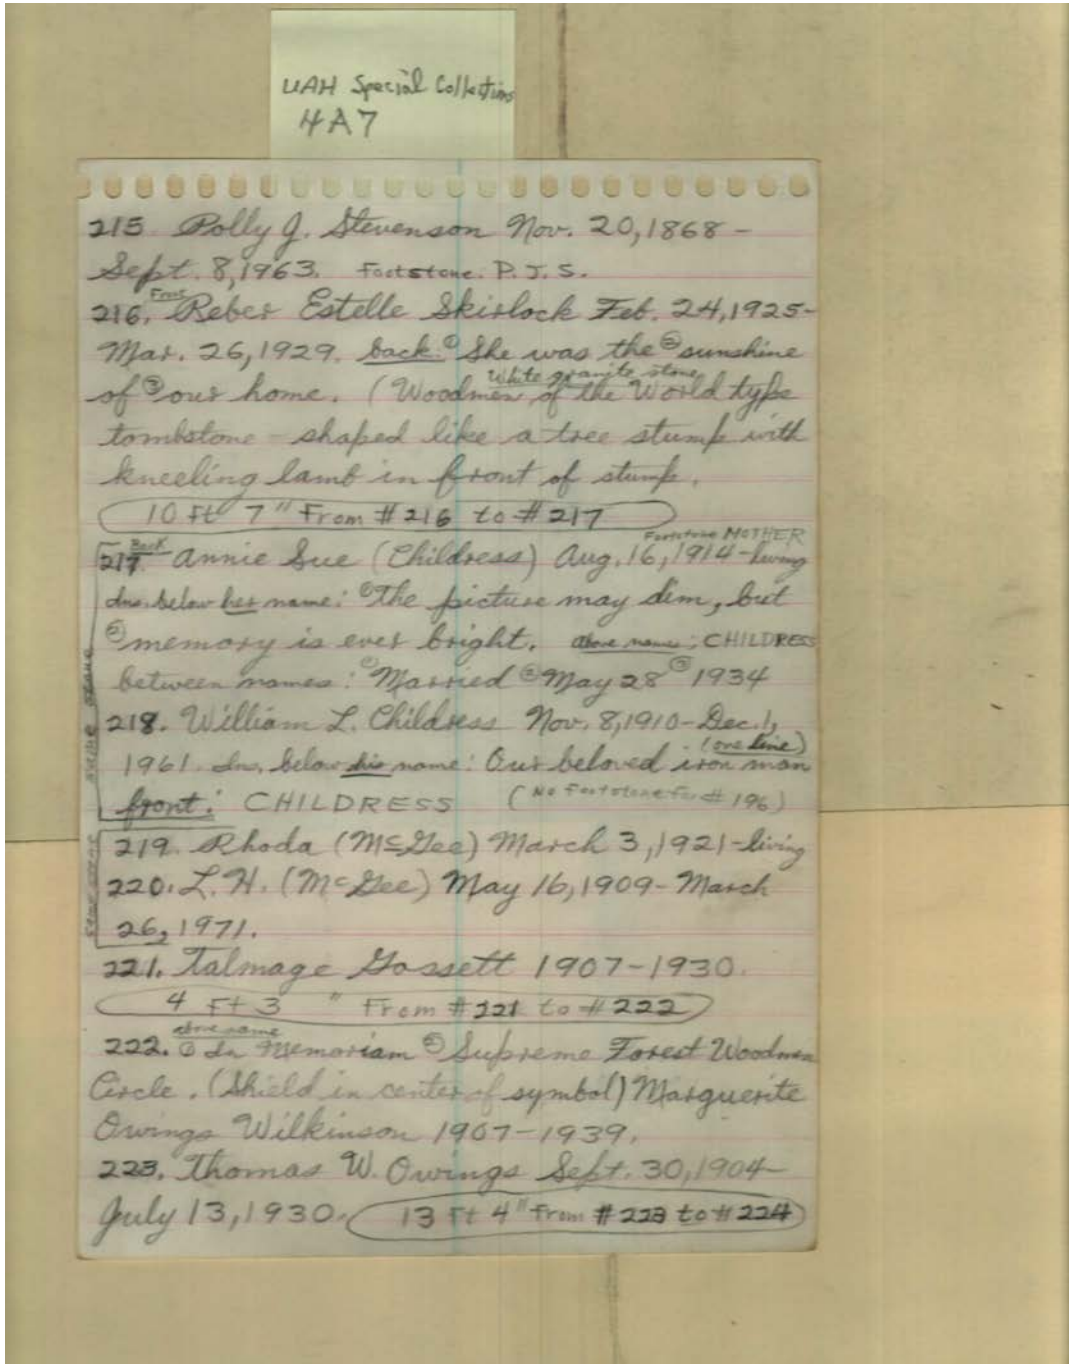 UAH Special Collections
4A7
215 Polly J. Stevenson Nov. 20,1868 -
Sept. 8,1963. Footstone. P.J.S.
Front
216. Reber Estelle Skirlock Feb. 24,1925-
Mar. 26,1929. back: ① She was the ② sunshine
White granite stone
of ③ our home. (Woodmen of the World type
tombstone - shaped like a tree stump with
kneeling lamb in front of stump.
10 Ft 7" From #216 to #217
Footstone MOTHER
Back
217. Annie Sue (Childress) Aug. 16,1914-living
Ins. below her name: ① The picture may dim, but
② memory is ever bright. above names: CHILDRESS
between names: ① Married ② May 28 ③ 1934
same stone
218. William L. Childress Nov. 8,1910-Dec. 1,
(one line)
1961. Ins. below his name: Our beloved iron man
front: CHILDRESS (No Footstone For # 196)
219. Rhoda (McGee) March 3,1921-living
220. L.H. (McGee) May 16,1909- March
same stone
26, 1971.
221. Talmage Gossett 1907-1930.
4 Ft 3 " From #221 to #222
above name
222. ① In Memoriam ② Supreme Forest Woodmen
Circle. (Shield in center of symbol) Marguerite
Owings Wilkinson 1907-1939.
223. Thomas W. Owings Sept. 30,1904-
July 13,1930. 13 Ft 4" From #223 to #224